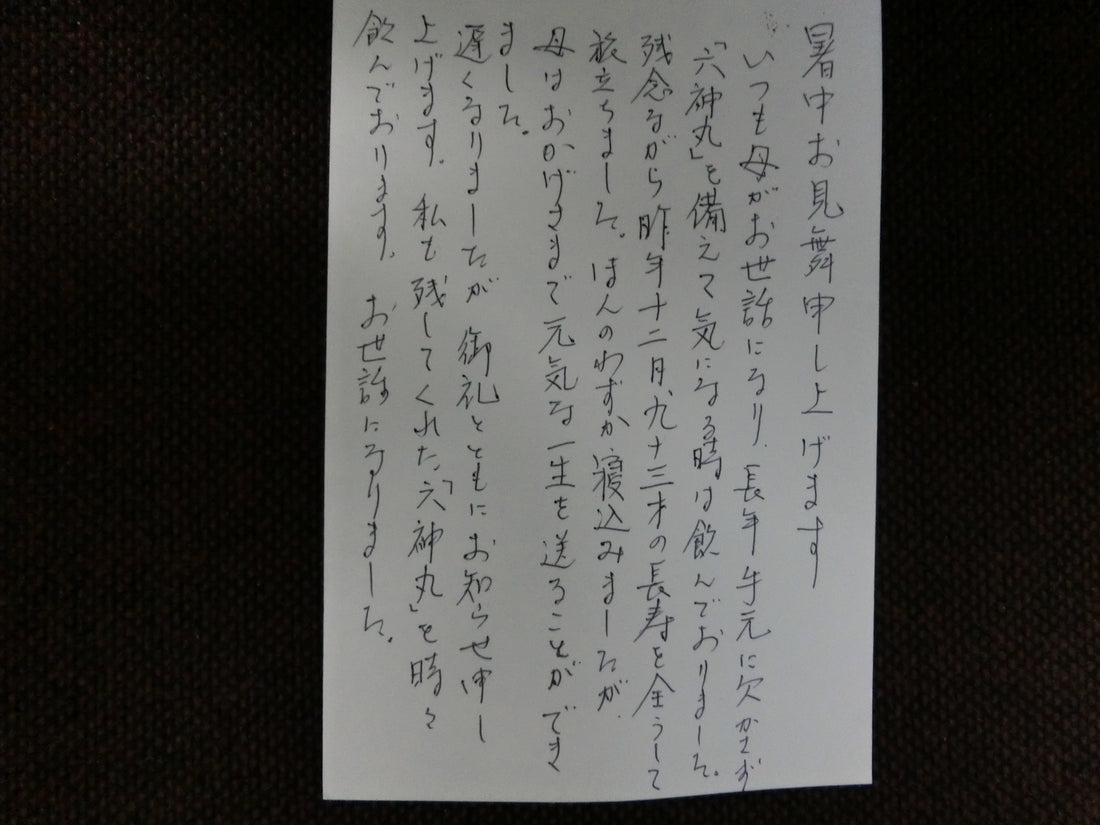 暑中お見舞申し上げます
いつも母がお世話になり、長年手元に欠かさず
「六神丸」を備えて気になる時は飲んでおりました。
残念ながら昨年十二月、九十三才の長寿を全うして
旅立ちました。ほんのわずか寝込みましたが、
母はおかげさまで元気な一生を送ることができ
ました。
遅くなりましたが 御礼とともにお知らせ申し
上げます。私も残してくれた「六神丸」を時々
飲んでおります。 お世話になりました。